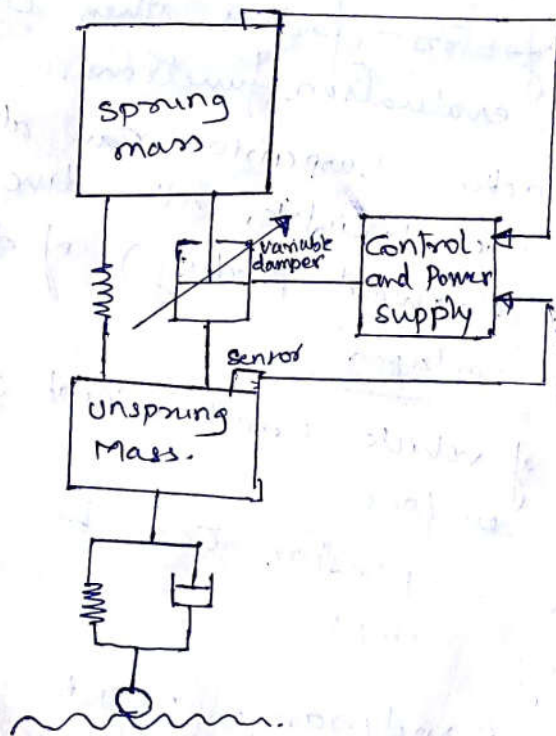 sprung
mass
variable
damper
Control
and Power
supply
sensor
unsprung
Mass.